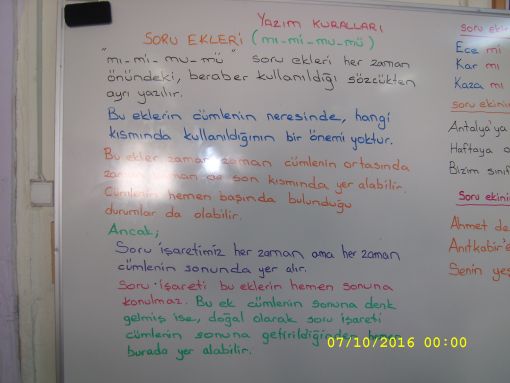 YAZIM KURALLARI
SORU EKLERİ (mı-mi-mu-mü)
"mı-mi-mu-mü" soru ekleri her zaman
önündeki, beraber kullanıldığı sözcükten
ayrı yazılır.
Bu eklerin cümlenin neresinde, hangi
kısmında kullanıldığının bir önemi yoktur.
Bu ekler zaman zaman cümlenin ortasında
zaman zaman da son kısmında yer alabilir.
Cümlenin hemen başında bulunduğu
durumlar da olabilir.
Ancak;
Soru işaretimiz her zaman ama her zaman
cümlenin sonunda yer alır.
Soru işareti bu eklerin hemen sonuna
konulmaz. Bu ek cümlenin sonuna denk
gelmiş ise, doğal olarak soru işareti
cümlenin sonuna getirildiğinden hemen
burada yer alabilir.
soru ekler
Ece mi
Kar mı
Kaza mı
soru ekini
Antalya'ya
Haftaya
Bizim sınıf
Soru ekini
Ahmet de
Anıtkabir'e
Senin yeş
07/10/2016 00:00